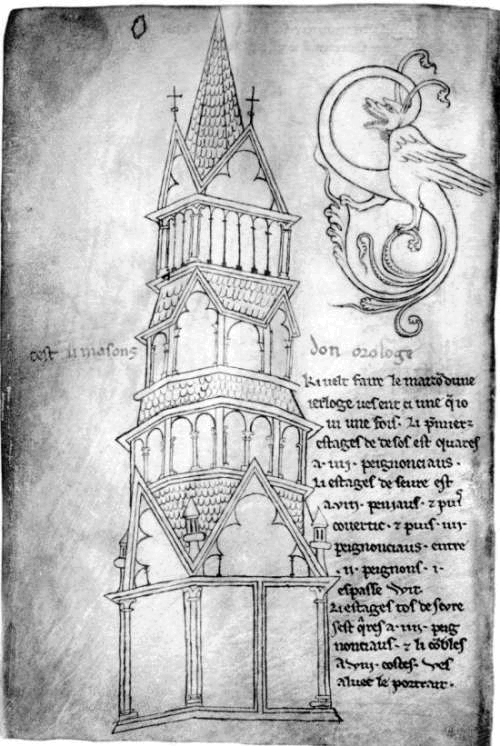 cest li masons don orologe
Ki velt faire le maizõ dune
ierloge ves ent ci une q̃ io
vi une fois. Li p̃miers
estages de desos est quares
a .iiij. peignonciaus.
Li estages de seure est
a .viij. peniaus . ⁊ puis
covertic . ⁊ puis .iiij.
peignonciaus . entre
.ij. peignons .i.
espasse wit.
Li estages tos de seure
sest q̃res a .iiij. peig
nonciaus . ⁊ li cõbles
a .viij. costes. Ves
aluec le portrait.